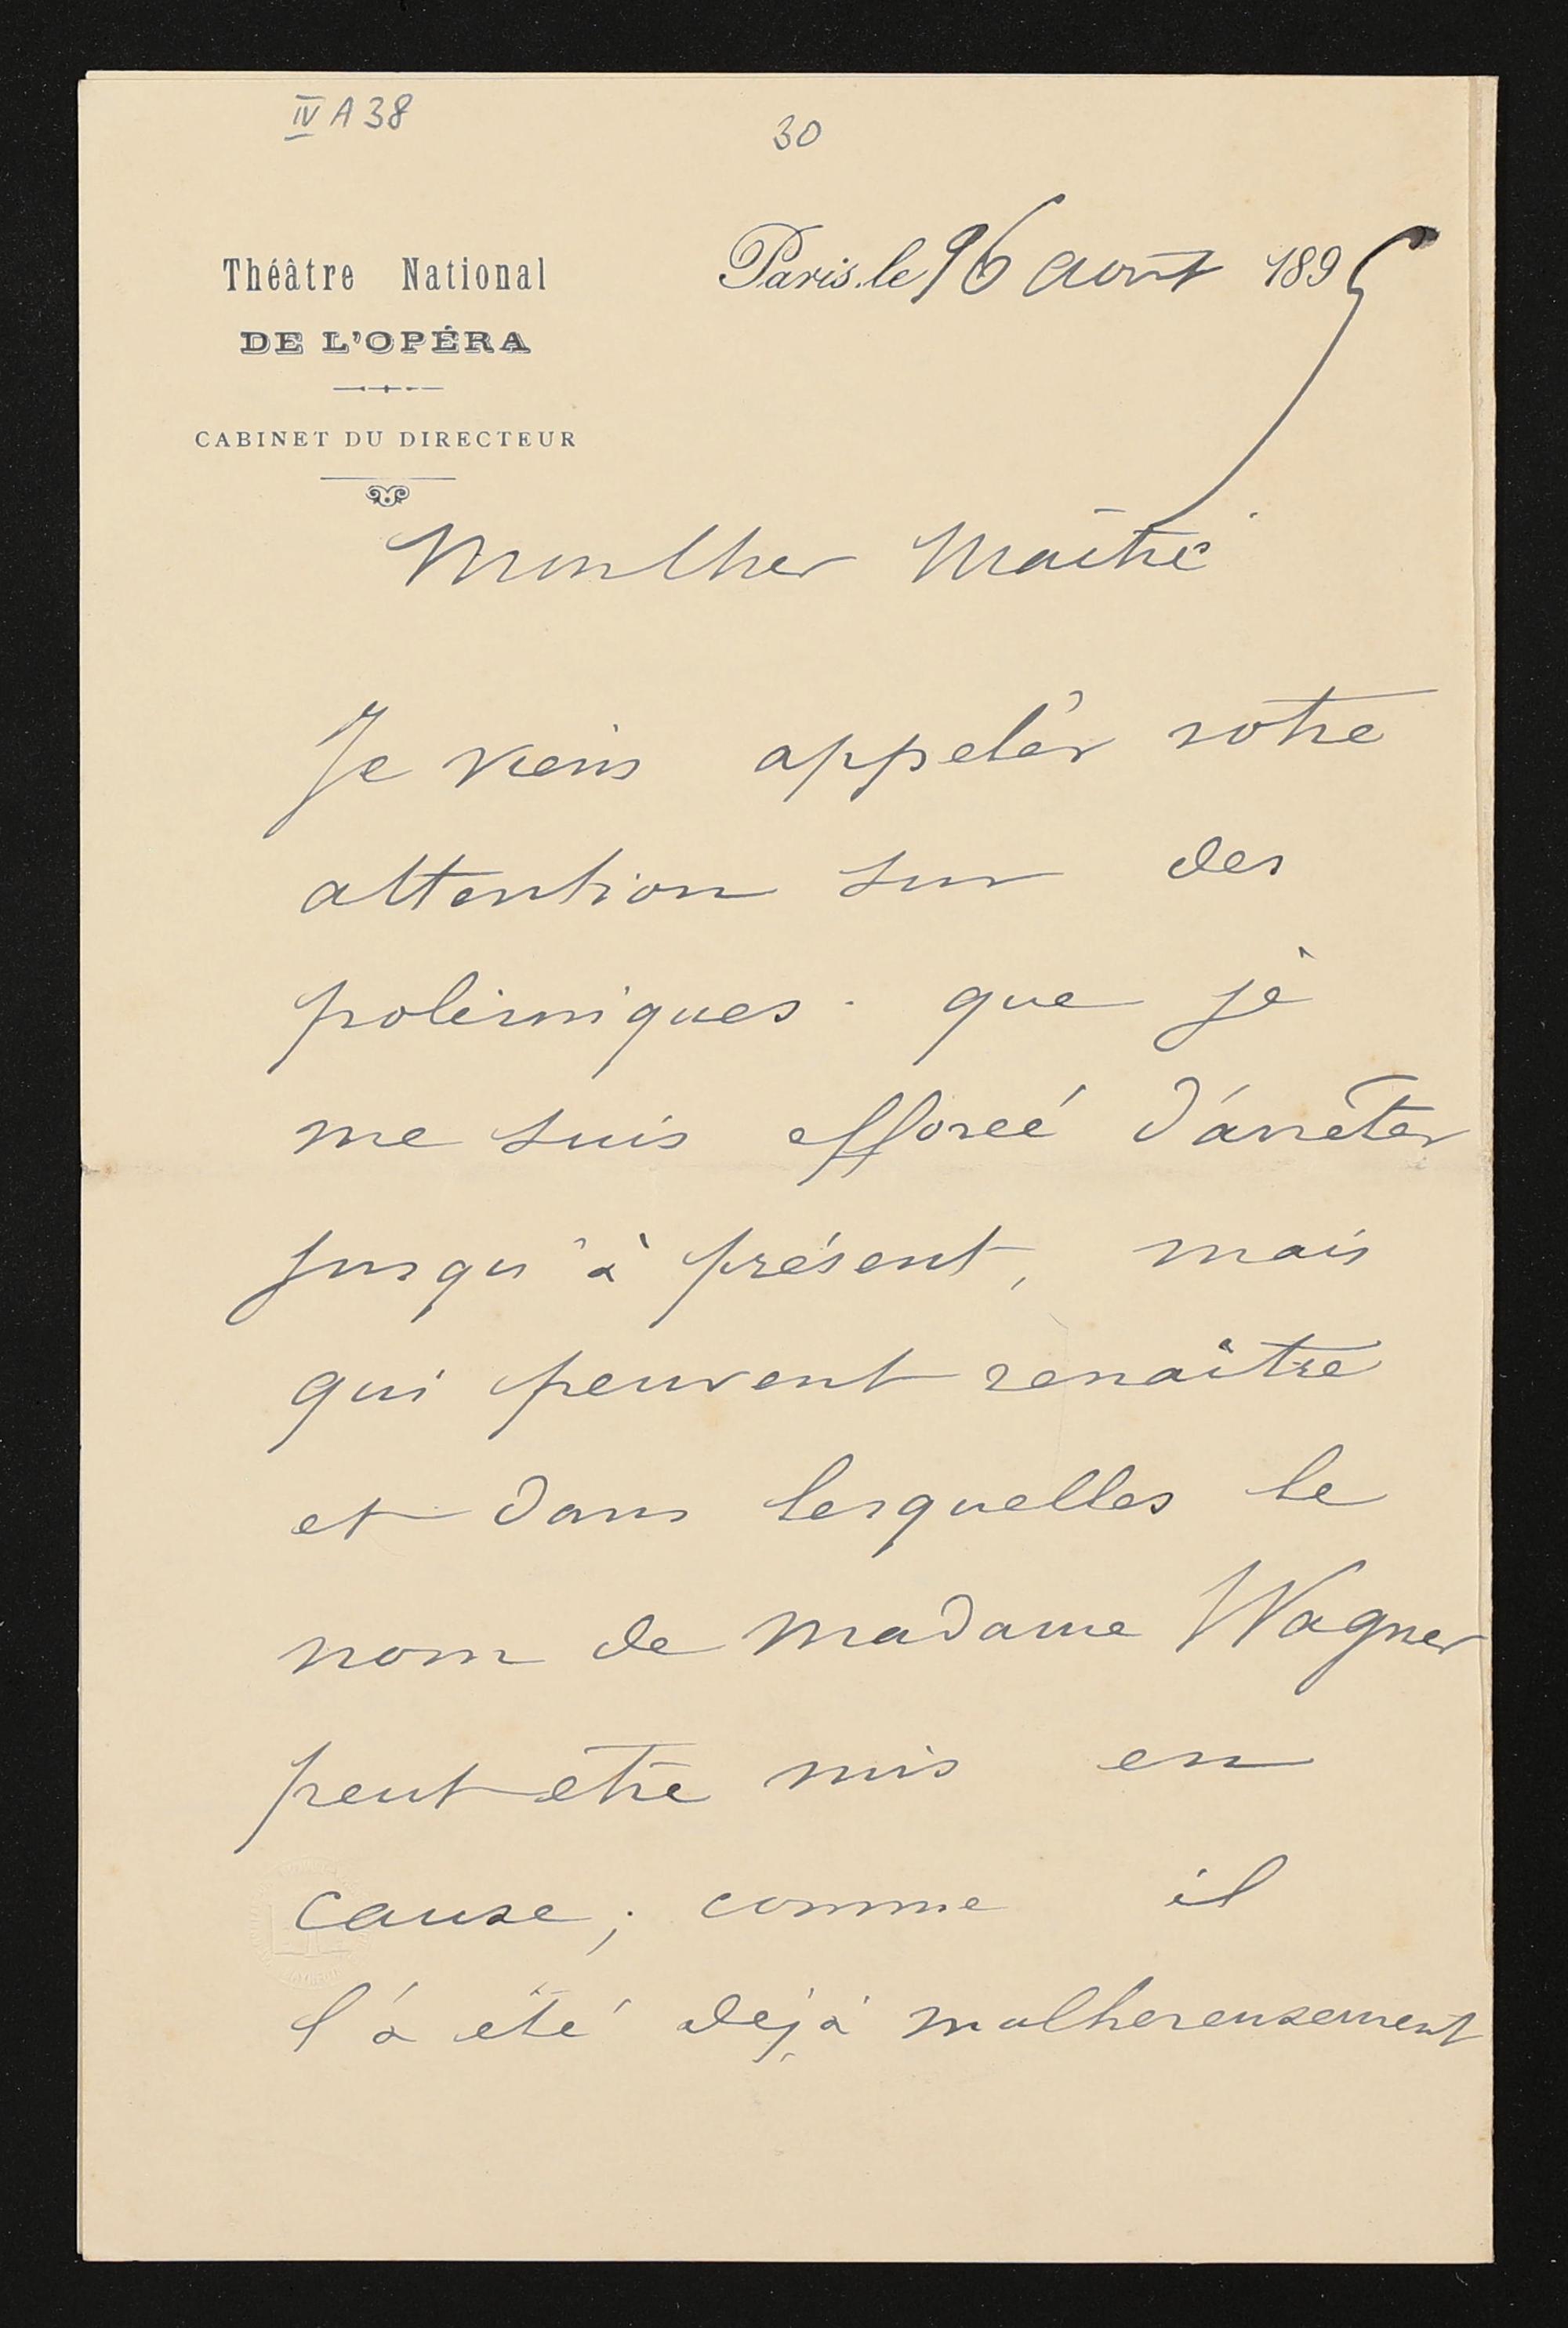 IV A 38
30
Théâtre National
DE L'OPÉRA
CABINET DU DIRECTEUR
Paris, le 26 août 1895
Mon cher Maître
Je viens appeler votre
attention sur des
polémiques que je
me suis efforcé d'arrêter
jusqu'à présent, mais
qui peuvent renaître
et dans lesquelles le
nom de Madame Wagner
peut être mis en
cause; comme il
l'a été déjà malhereusement